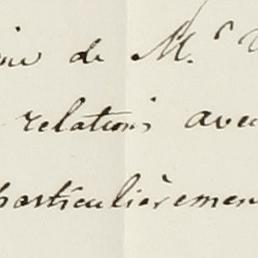 de M.r
relations avec
particulièremen